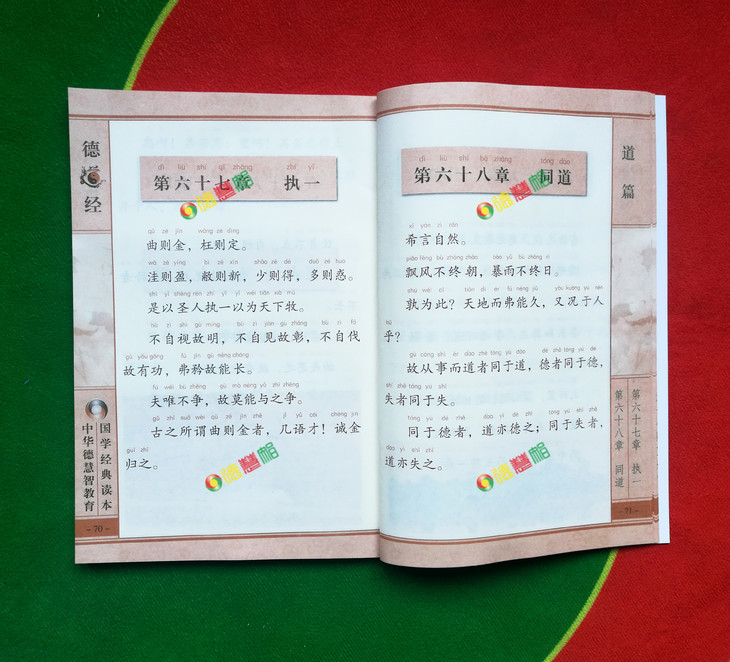 德
经
dì liù shí qī zhāng zhí yī
第六十七章 执一
qū zé jīn wǎng zé dìng
曲则金，枉则定。
wā zé yíng bì zé xīn shǎo zé dé duō zé huò
洼则盈，敝则新，少则得，多则惑。
shì yǐ shèng rén zhí yī yǐ wéi tiān xià mù
是以圣人执一以为天下牧。
bú zì shì gù míng bú zì jiàn gù zhāng bú zì fá
不自视故明，不自见故彰，不自伐
gù yǒu gōng fú jīn gù néng cháng
故有功，弗矜故能长。
fū wéi bù zhēng gù mò néng yǔ zhī zhēng
夫唯不争，故莫能与之争。
gǔ zhī suǒ wèi qū zé jīn zhě jǐ yǔ cái chéng jīn
古之所谓曲则金者，几语才！诚金
guī zhī
归之。
国学经典读本
中华德慧智教育
- 70 -
dì liù shí bā zhāng tóng dào
第六十八章 同道
xī yán zì rán
希言自然。
piāo fēng bù zhōng zhāo bào yǔ bù zhōng rì
飘风不终朝，暴雨不终日。
shú wéi cǐ tiān dì ér fú néng jiǔ yòu kuàng yú rén
孰为此？天地而弗能久，又况于人
hū
乎？
gù cóng shì ér dào zhě tóng yú dào dé zhě tóng yú dé
故从事而道者同于道，德者同于德，
shī zhě tóng yú shī
失者同于失。
tóng yú dé zhě dào yì dé zhī tóng yú shī zhě
同于德者，道亦德之；同于失者，
dào yì shī zhī
道亦失之。
道篇
第六十七章 执一
第六十八章 同道
- 71 -